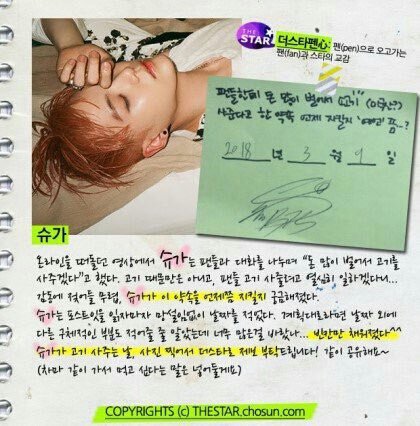 THE STAR
더스타펜心: 펜(pen)으로 오고가는
팬(fan)과 스타의 교감
팬들한테 돈 많이 벌어서 고기
사준다고 한 약속 언제 지킬지
2018 년 3 월 9 일
슈가
온라인을 떠돌던 영상에서 슈가는 팬들과 대화를 나누며 "돈 많이 벌어서 고기를
사주겠다"고 했다. 고기 때문만은 아니고, 팬들 고기 사줄려고 열심히 일하겠다니...
감동에 젖어들 무렵, 슈가가 이 약속을 언제쯤 지킬지 궁금해졌다.
슈가는 포스트잇을 읽자마자 망설임없이 날짜를 적었다. 계획대로라면 날짜 외에
다른 구체적인 부분도 적어줄 줄 알았는데 너무 많은걸 바랐나... 빈칸만 채워졌다^^
슈가가 고기 사주는 날, 사진 찍어서 더스타로 제보 부탁드립니다! 같이 공유해요~
(차마 같이 가서 먹고 싶다는 말은 넣어둘게요)
COPYRIGHTS (c) THESTAR.chosun.com